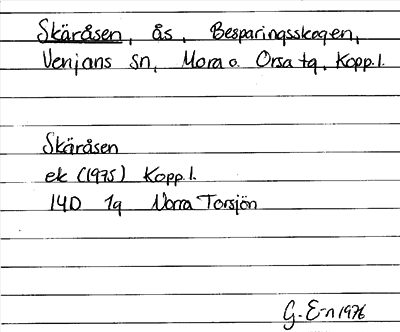 Skäråsen, ås, Besparingsskogen,
Venjans sn, Mora o. Orsa tg, Kopp.l.
Skäråsen
ek (1975) Kopp.l.
14D 1q Norra Torsjön
G. E-n 1976